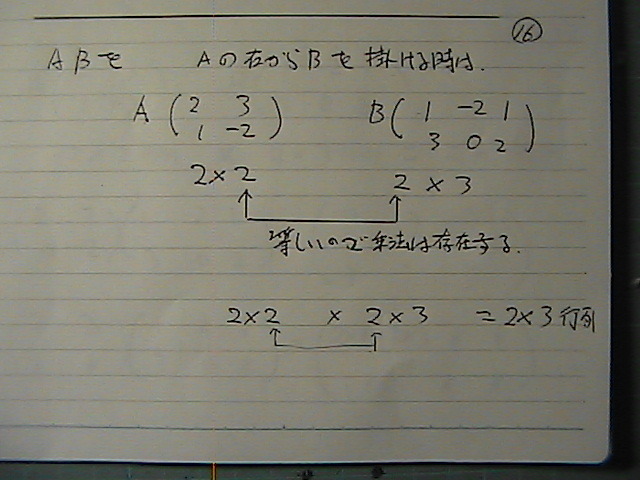 ⑯
ABを Aの右からBを掛ける時は.
A ( 2 3 B ( 1 -2 1
1 -2 ) 3 0 2 )
2×2 2×3
等しいので乗法は存在する.
2×2 × 2×3 =2×3行列